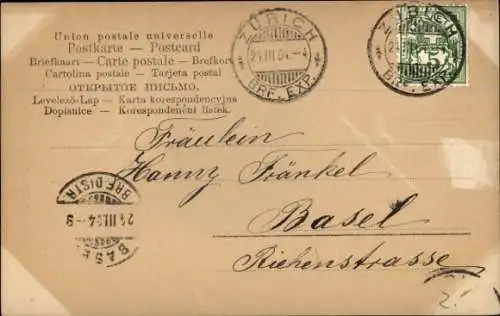 Union postale universelle
Postkarte — Postcard
Briefkaart — Carte postale — Brefkort
Cartolina postale — Tarjeta postal
ОТКРЫТОЕ ПИСЬМО.
Levelező-Lap — Karta korespondencyjna
Dopisnice — Korespondenční lístek.
ZÜRICH
21.III.04.-4
BRF. EXP.
ZÜRICH
BRF. EXP.
5
Fräulein
Hanny Fränkel
Basel
Riehenstrasse
BASEL
21.III.04-9
BRF. DISTR.